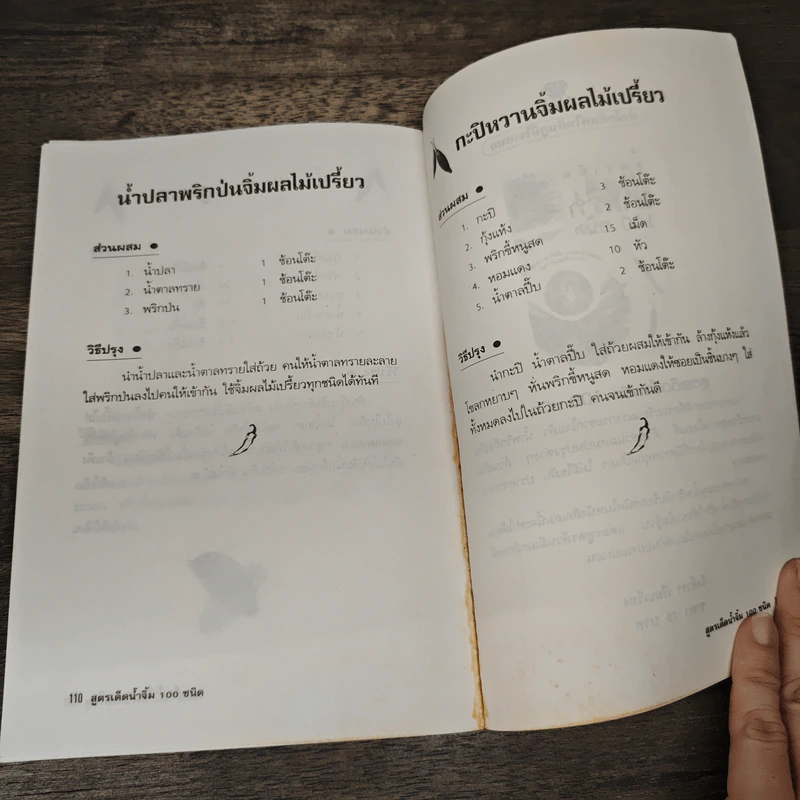 น้ำปลาพริกป่นจิ้มผลไม้เปรี้ยว
ส่วนผสม
1. น้ำปลา 1 ช้อนโต๊ะ
2. น้ำตาลทราย 1 ช้อนโต๊ะ
3. พริกป่น 1 ช้อนโต๊ะ
วิธีปรุง
นำน้ำปลาและน้ำตาลทรายใส่ถ้วย คนให้น้ำตาลทรายละลาย
ใส่พริกป่นลงไปคนให้เข้ากัน ใช้จิ้มผลไม้เปรี้ยวทุกชนิดได้ทันที
110 สูตรเด็ดน้ำจิ้ม 100 ชนิด
กะปิหวานจิ้มผลไม้เปรี้ยว
ส่วนผสม
1. กะปิ 3 ช้อนโต๊ะ
2. กุ้งแห้ง 2 ช้อนโต๊ะ
3. พริกขี้หนูสด 15 เม็ด
4. หอมแดง 10 หัว
5. น้ำตาลปี๊บ 2 ช้อนโต๊ะ
วิธีปรุง
นำกะปิ น้ำตาลปี๊บ ใส่ถ้วยผสมให้เข้ากัน ล้างกุ้งแห้งแล้ว
โขลกหยาบๆ หั่นพริกขี้หนูสด หอมแดงให้ซอยเป็นชิ้นบางๆ ใส่
ทั้งหมดลงไปในถ้วยกะปิ คนจนเข้ากันดี
สูตรเด็ดน้ำจิ้ม 100 ชนิด